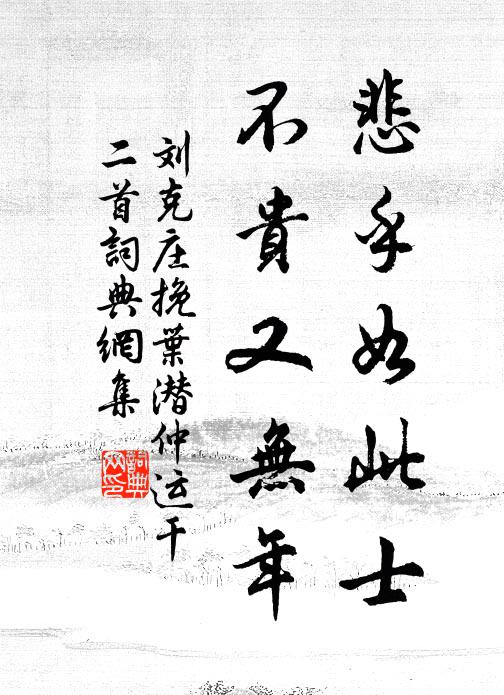 悲乎如此士
不貴又無年
刘克庄挽葉潜仲运干
二首詞典網集